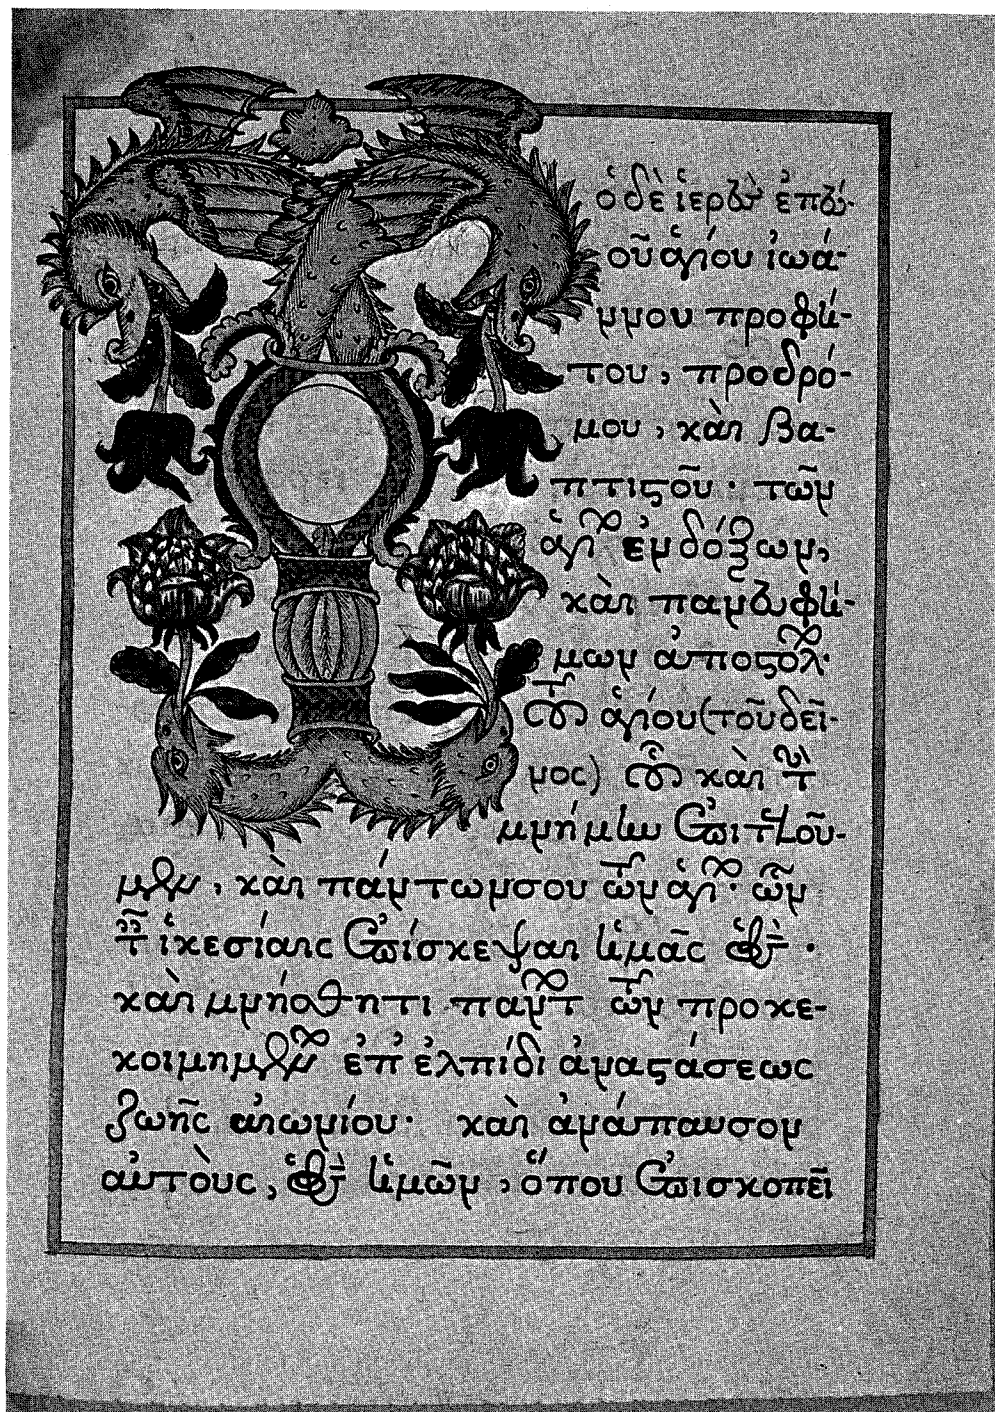 ὁ δὲ ἱερεὺς ἐπεύ-
οῦ ἁγίου ἰωά-
ννου προφή-
του, προδρό-
μου, καὶ βα-
πτιστοῦ · τῶν
ἁγίων ἐνδόξων,
καὶ πανευφή-
μων ἀποστόλων·
τοῦ ἁγίου (τοῦ δεῖ-
νος) οὗ καὶ τὴν
μνήμην ἐπιτελοῦ-
μεν, καὶ πάντων σου τῶν ἁγίων · ὧν
ταῖς ἱκεσίαις ἐπίσκεψαι ἡμᾶς ὁ θεὸς ·
καὶ μνήσθητι πάντων τῶν προκε-
κοιμημένων ἐπ' ἐλπίδι ἀναστάσεως
ζωῆς αἰωνίου · καὶ ἀνάπαυσον
αὐτοὺς, ὁ θεὸς ἡμῶν, ὅπου ἐπισκοπεῖ